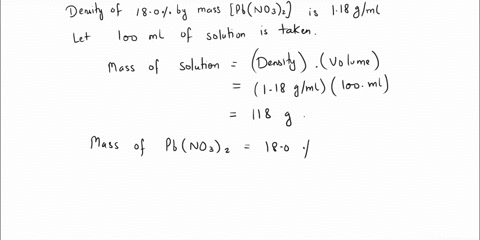 Density of 18.0% by mass [Pb(NO3)2] is 1.18 g/ml
Let 100 ml of solution is taken.
Mass of solution = (Density) . (Volume)
= (1.18 g/ml) (100. ml)
= 118 g.
Mass of Pb(NO3)2 = 18.0 /